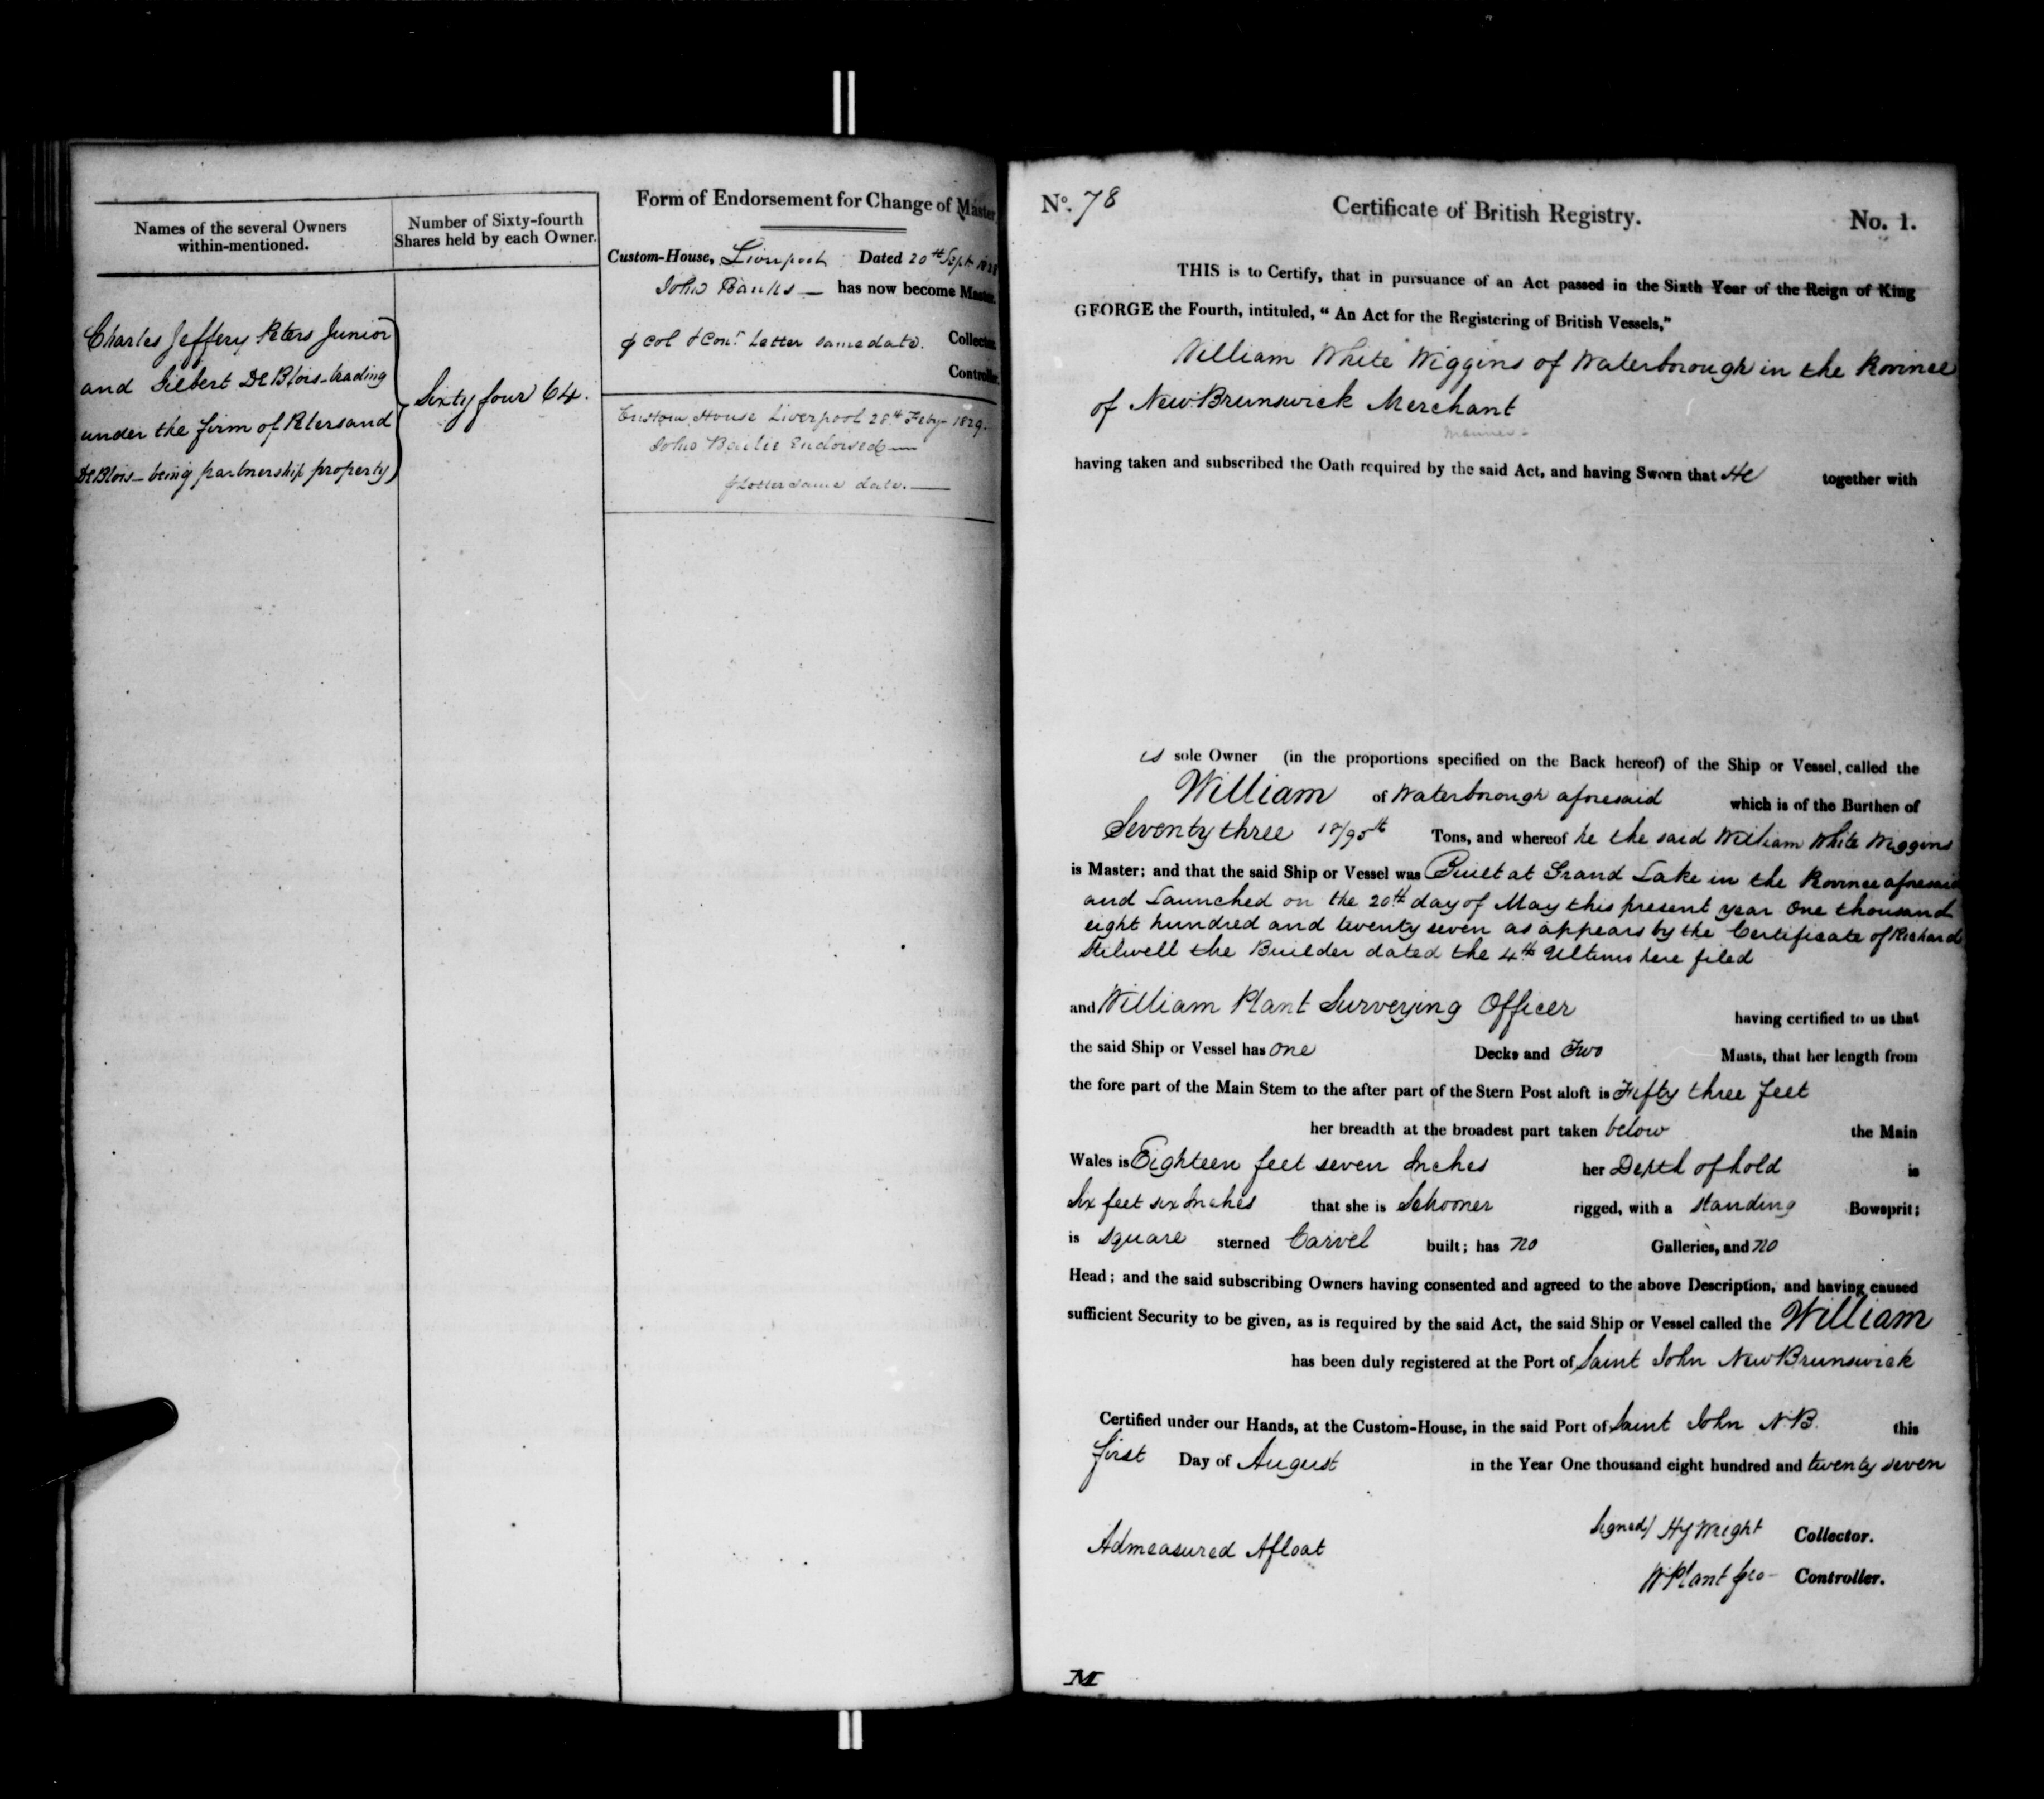 Names of the several Owners
within-mentioned.
Number of Sixty-fourth
Shares held by each Owner.
Charles Jeffery Peters Junior
and Gilbert DeBlois trading
under the firm of Peters and
DeBlois - being partnership property
Sixty four 64.
Form of Endorsement for Change of Master
Custom-House, Liverpool Dated 20th Sept 1828
John Banks — has now become Master.
⅌ Col & Conr Letter same date. Collector.
Controller.
Custom House Liverpool 28th Feby 1829.
John Bailie Endorsed —
⅌ Letter same date. —
No. 78
Certificate of British Registry.
No. 1.
THIS is to Certify, that in pursuance of an Act passed in the Sixth Year of the Reign of King
GEORGE the Fourth, intituled, “ An Act for the Registering of British Vessels,”
William White Wiggins of Waterborough in the Province
of New Brunswick Merchant
Mariner
having taken and subscribed the Oath required by the said Act, and having Sworn that He together with
is sole Owner (in the proportions specified on the Back hereof) of the Ship or Vessel, called the
William of Waterborough aforesaid which is of the Burthen of
Seventy three 18/95th Tons, and whereof he the said William White Wiggins
is Master; and that the said Ship or Vessel was Built at Grand Lake in the Province aforesaid
and Launched on the 20th day of May this present year One thousand
eight hundred and twenty seven as appears by the Certificate of Richard
Stilwell the Builder dated the 4th Ultimo here filed
and William Plant Surveying Officer having certified to us that
the said Ship or Vessel has one Decks and Two Masts, that her length from
the fore part of the Main Stem to the after part of the Stern Post aloft is Fifty three feet
her breadth at the broadest part taken below the Main
Wales is Eighteen feet seven Inches her Depth of hold is
Six feet six Inches that she is Schooner rigged, with a standing Bowsprit;
is square sterned Carvel built; has no Galleries, and no
Head; and the said subscribing Owners having consented and agreed to the above Description, and having caused
sufficient Security to be given, as is required by the said Act, the said Ship or Vessel called the William
has been duly registered at the Port of Saint John New Brunswick
Certified under our Hands, at the Custom-House, in the said Port of Saint John N.B. this
first Day of August in the Year One thousand eight hundred and twenty seven
Signed/ Hy Wright Collector.
Admeasured Afloat
W Plant Controller.
M